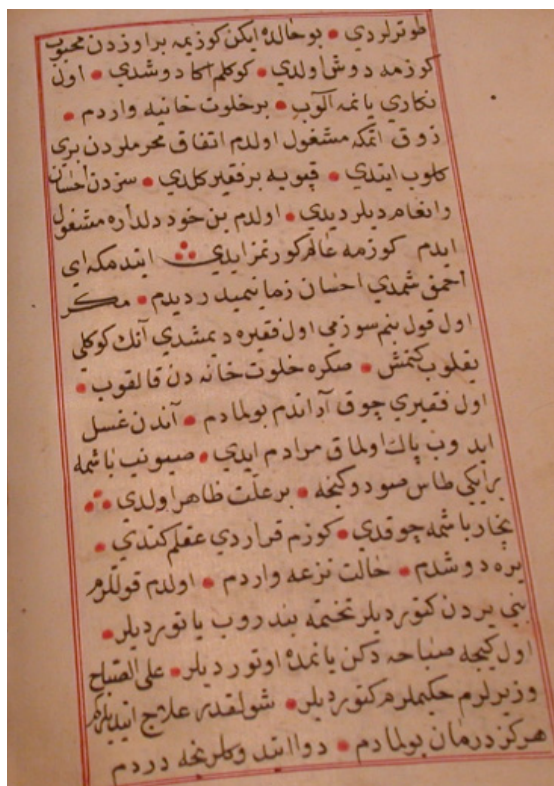 طوترلردي • بو حالده ايكن كوزيمه براوزدن محبوب
كوزمه دوش اولدي • كوكلم اكا دوشدي • اول
نكاري يانمه آلوب • بر خلوت خانيه واردم •
ذوق اتمكه مشغول اولدم اتفاق محرملردن بري
كلوب ايتدي • قپويه بر فقير كلدي • سزدن احسان
وانعام ديلر ديدي • اولدم بن خود دلداره مشغول
ايدم كوزمه عالم كورنمز ايدي ايتدمكه اي
احمق شمدي احسان زمانيميدر ديدم • مكر
اول قول بنم سوزمي اول فقيره ديمشدي آنك كوكلي
يقلوب كتمش • صكره خلوت خانه دن قالقوب •
اول فقيري چوق آراتدم بولمادم • آندن غسل
ايدوب پاك اولماق مرادم ايدي • صيونيب باشمه
بر ايكي طاس صو دوكيجه • بر علت ظاهر اولدي
بخار باشمه چوقدي • كوزم قراردي عقلم كتدي •
يره دوشدم • حالت نزعه واردم • اولدم قوللرم
بني يردن كتورديلر تختمه بندروب ياتورديلر •
اول كيجه صباحه دكن يانمده اوتورديلر • على الصباح
وزيرلرم حكيملرم كتورديلر • شولقدر علاج ايتديلركم
هركز درمان بولمادم • دوا ايتدوكلرنجه دردم